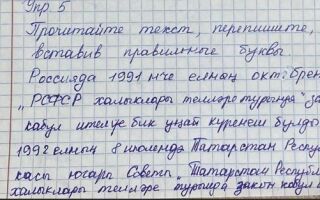 Упр 5
Прочитайте текст, перепишите,
вставив правильные буквы
Россияда 1991 нче елның октябрен
„РСФСР халыклары телләре турында" за
кабул ителүе бик уңай күренеш булды
1992 елның 8 июлендә Татарстан Респу
касы югары Советы „Татарстан Республ
халыклары телләре турында закон кабул и